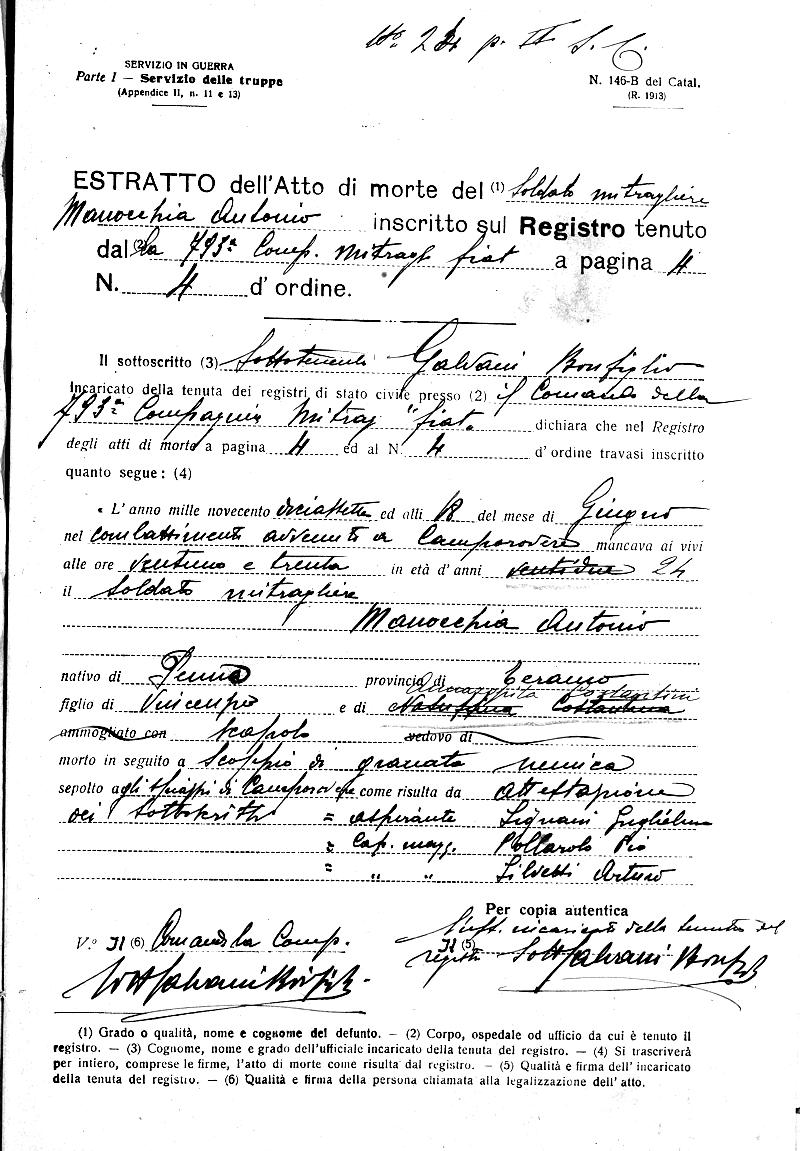 No 234 p. II S. C.
SERVIZIO IN GUERRA
Parte I — Servizio delle truppe
(Appendice II, n. 11 e 13)
N. 146-B del Catal.
(R. 1913)
ESTRATTO dell'Atto di morte del (1) Soldato mitragliere
Manocchia Antonio inscritto sul Registro tenuto
dal (2) la 793ª Comp. Mitragl. fiat a pagina 4
N. 4 d'ordine.
Il sottoscritto (3) Sottotenente Galvani Bonfiglio
Incaricato della tenuta dei registri di stato civile presso (2) il Comando della
793ª Compagnia Mitrag "fiat. dichiara che nel Registro
degli atti di morte a pagina 4 ed al N. 4 d'ordine travasi inscritto
quanto segue: (4)
« L'anno mille novecento diciassette ed alli 18 del mese di Giugno
nel combattimento avvenuto a Camporovere mancava ai vivi
alle ore ventuno e trenta in età d'anni ventidue 24
il Soldato mitragliere
Manocchia Antonio
nativo di Penna provincia di Teramo
Annunziata Costantini
figlio di Vincenzo e di Costantina
ammogliato con scapolo vedovo di
morto in seguito a scoppio di granata nemica
sepolto agli Spiazzi di Camporovere come risulta da attestazione
dei sottoscritti = aspirante Lignani Guglielmo
= Cap. magg. Pollarolo Pio
= " " Silvetti Arturo
Per copia autentica
V.o Il (6) Comand la Comp.
L'uff. incaricato della tenuta del
Il (5) registri Sott Galvani Bonfiglio
Sott Galvani Bonfiglio
(1) Grado o qualità, nome e cognome del defunto. — (2) Corpo, ospedale od ufficio da cui è tenuto il
registro. — (3) Cognome, nome e grado dell'ufficiale incaricato della tenuta del registro. — (4) Si trascriverà
per intiero, comprese le firme, l'atto di morte come risulta dal registro. — (5) Qualità e firma dell'incaricato
della tenuta del registro. — (6) Qualità e firma della persona chiamata alla legalizzazione dell'atto.